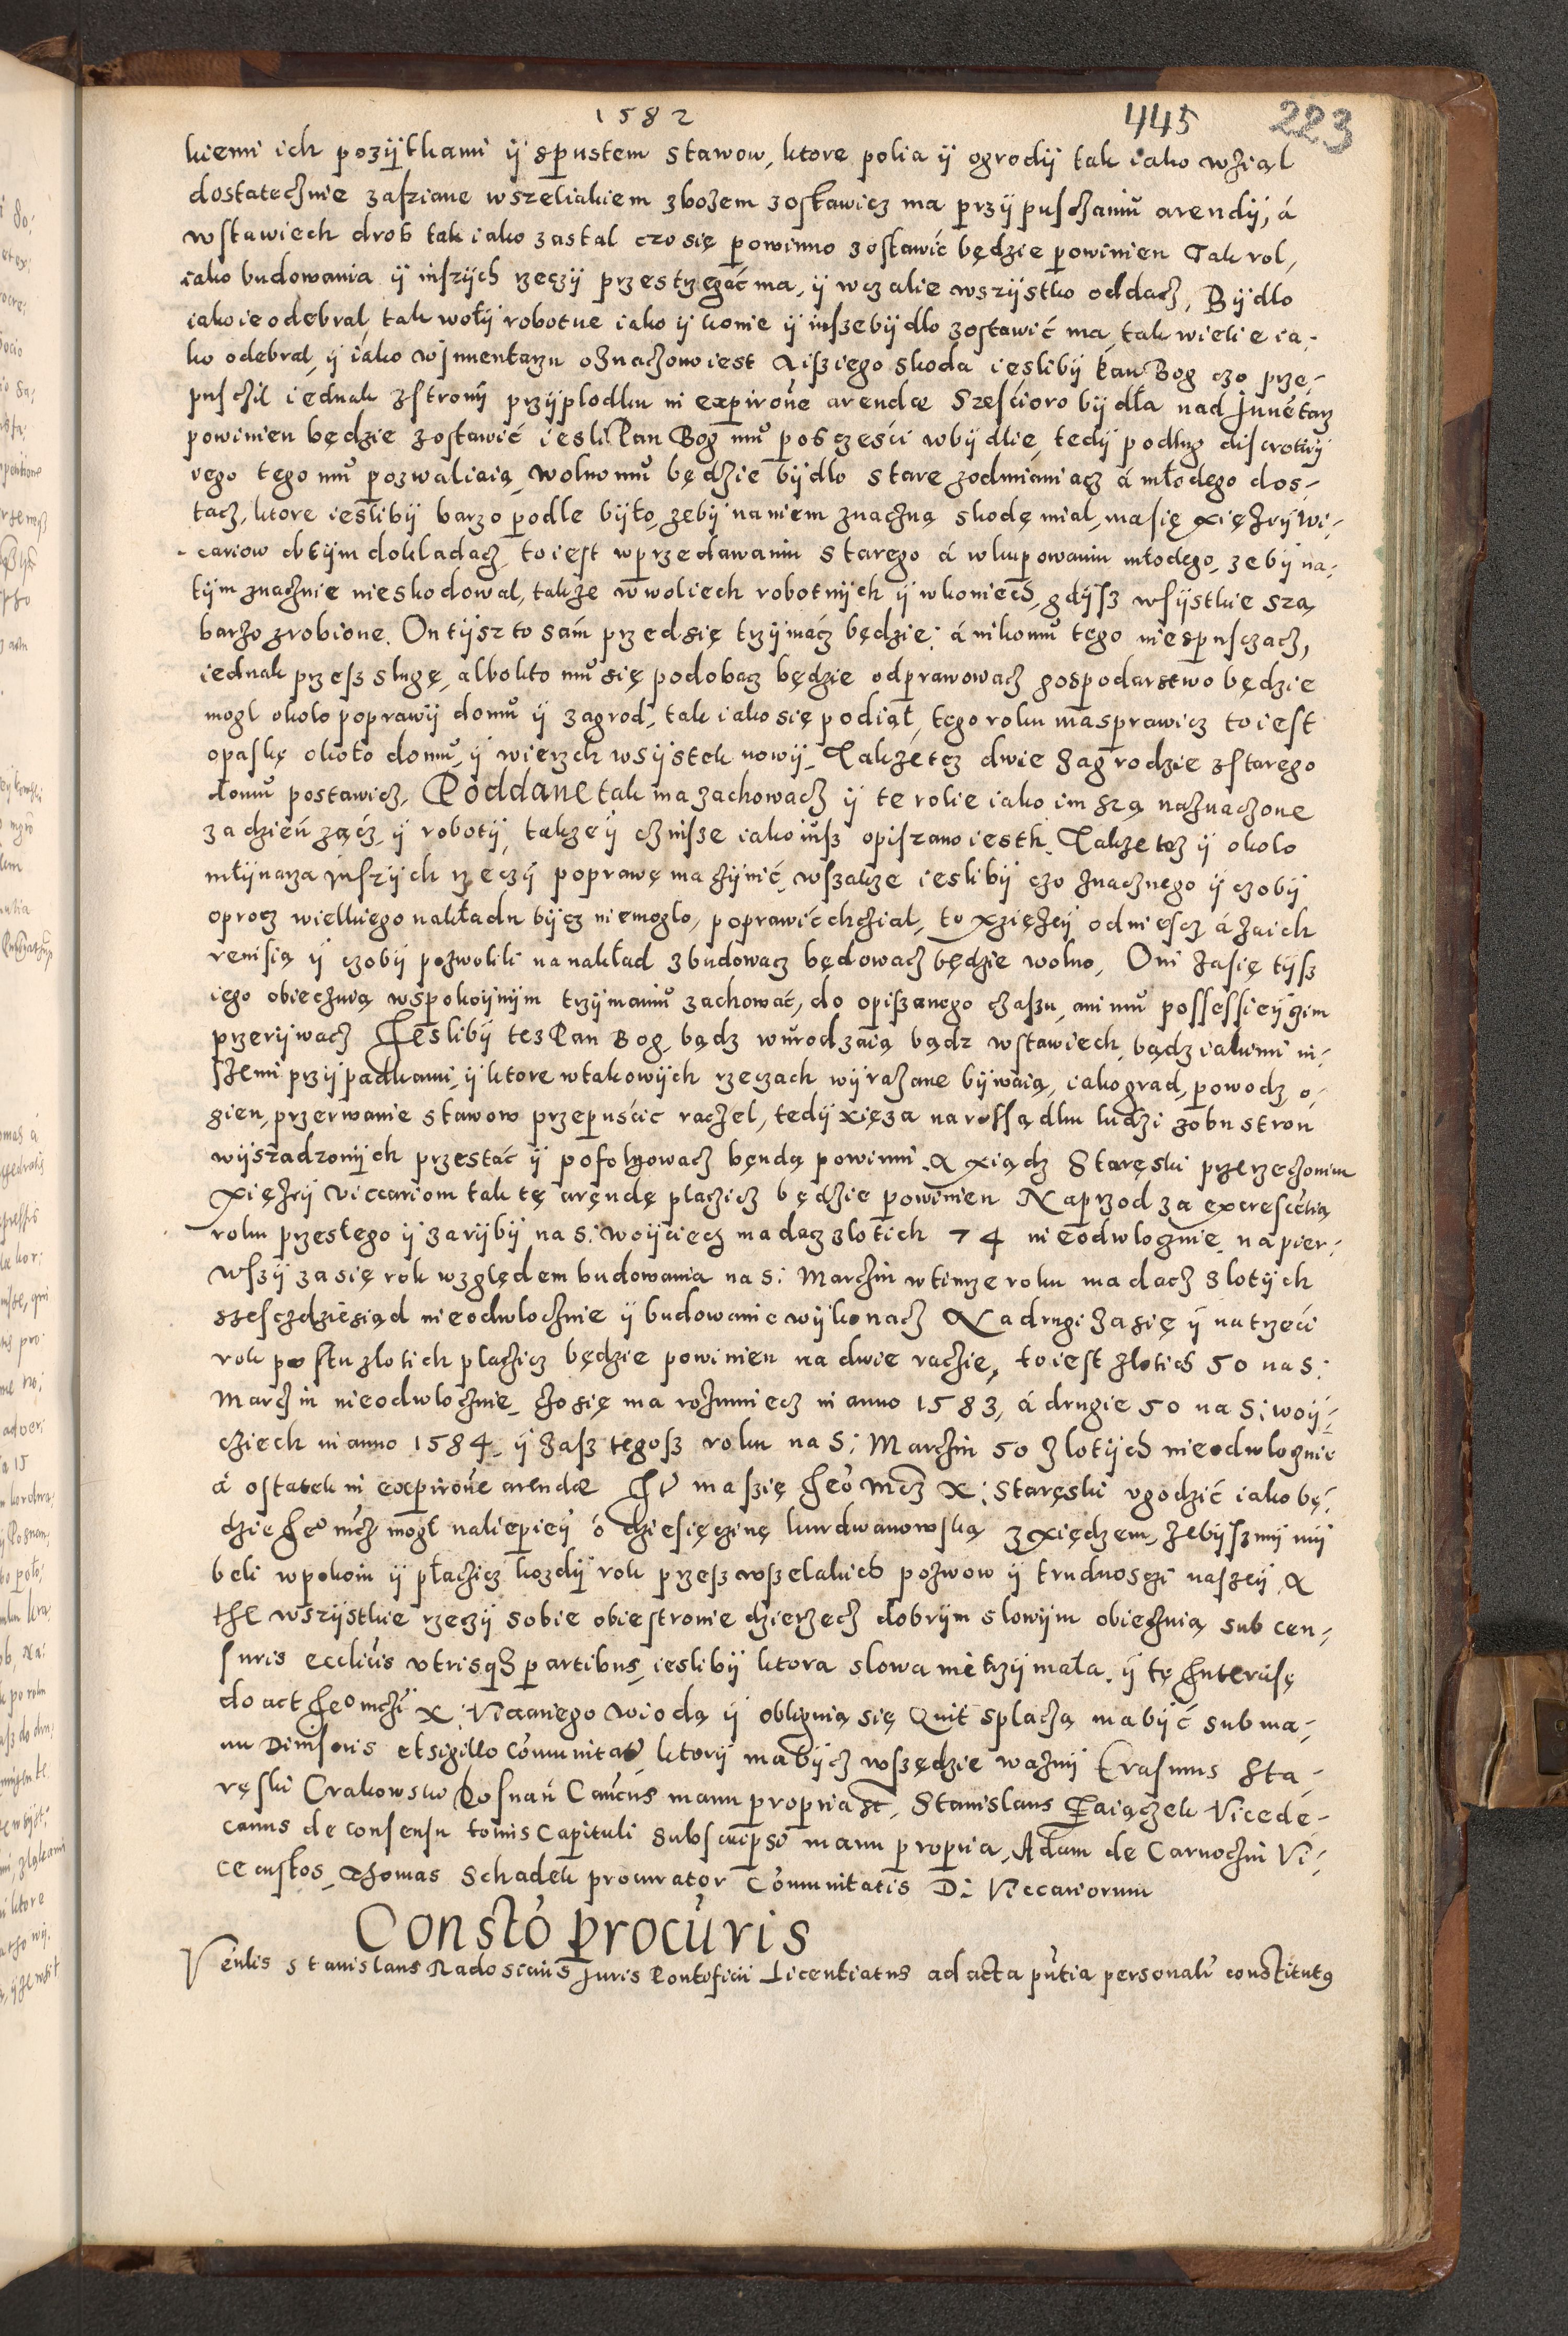 1582 445 223
kiemi ich pozÿtkami ÿ spustem stawow, ktore polia ÿ ogrodÿ tak iako wział
dostatecznie zasziane wszeliakiem zbożem zostawicz ma przÿ pusczaniu arendÿ, á
wstawiech drob tak iako zastal czo się powinno zostawić będzie powinien Tak rol,
iako budowania ÿ inszÿch rzeczÿ przestrzegáć ma, ÿ wczalie wszÿstko oddacz, Bÿdło
iako ie odebral, tak wołÿ robotne iako ÿ konie ÿ insze bÿdło zostawić ma, tak wielie ia-
ko odebral, ÿ iáko w Inuentarzu oznaczono iest A isz iego skoda iesliby Pan Bog czo prze-
puscił iednak zstronÿ przÿplodku in expirone arendæ Sześcioro bÿdła nad Inuētarz
powinien będzie zostawić iesli Pan Bog mu poscześci wbÿdlie, tedÿ podług discretiÿ
iego tego mu pozwaliaią, wolno mu będzie bÿdło stare zodmianiacz á młodego dos-
tacz, ktore iesliby barzo podle bÿło, zebÿ na niem znaczną skodę miał, ma się xięzeÿ Wi-
cariow otÿm dokladacz, to iest wprzedawaniu starego á wkupowaniu młodego, ze bÿ na
tÿm znacznie nieskodowal, takze w woliech robotnÿch ÿ wkoniech, gdÿsz wsÿstkie szą
barzo zrobione. On tÿsz to sám przedsię trzÿmácz będzie: á nikomu tego niespusczacz,
iednak przesz slugę, albo kto mu się podobacz będzie odprawowacz gospodarstwo będzie
mogl około poprawÿ domu ÿ zagrod, tak iako się podiął, tego roku ma sprawicz to iest
opaskę około domu, ÿ wierzch wsÿstek nowÿ, Takze tez dwie Zagrodzie zstarego
domu postawicz, Poddane tak ma zachowacz ÿ te rolie iako im szą naznaczone
za dzień żącz ÿ robotÿ, takze ÿ czinsze iako iusz opiszano iesth. Takze tez ÿ około
młÿnarza inszÿch rzeczÿ poprawę ma czÿnić, wszakze iesliby czo znacznego ÿ czobÿ
oprocz wielkiego nakładu bÿcz niemogło, poprawić chciał, to Xzięzeÿ odniescz á za ich
renisią ÿ czobÿ pozwolili na nakład zbudowacz będowacz będzie wolno, Oni zasię tÿsz
iego obiecuią wspokoÿnÿm trzÿmaniu zachować, do opiszanego czaszu, ani mu possessieÿ gim
przerÿwacz Iesliby tez Pan Bog, bądz wurodzaią bądz wstawiech, bądz iakimi in-
szemi przÿpadkami, ÿ ktore wtakowÿch rzeczach wÿrażane bÿwaią, iako grad, powodz, o-
gien, przerwanie stawow przepuścic raczel, tedÿ xięza na rossądku ludzi zobu stron
wÿszadzonÿch przestać ÿ pofolgowacz bendą powinni. A xiądz Staręski przerzeczonim
Xięzeÿ Viccariom tak tę aręndę płacicz będzie powinien Naprzod za excrescētią
roku przesłego ÿ za rÿbÿ na S. Woÿciech ma dacz zlotich 74 nieodwlocznie, na pier-
wszÿ zasię rok względem budowania na S: Marchin w timze roku ma dacz zlotÿch
szesczdziesiąd nieodwlocznie ÿ budowanie wÿkonacz Na drugi zasię ÿ na trzeci
rok po stu zlotich placzicz będzie powinien na dwie racie, to iest zlotich 50 na S:
Marchin nieodwlocznie, czo się ma rozumiecz in anno 1583, á drugie 50 na S: Woÿ-
ciech in anno 1584, ÿ zasz tegosz roku na S: Marchin 50 zlotÿch nieodwlocznie
á ostatek in expirone arendæ ma szię Ieo Mcz X: Staręski vgodzić iako bę-
dzie Ieo Mcz mogł naliepieÿ o dziesięcinę kurdwanowską z xiędzem, zebÿszmÿ mÿ
beli wpokoiu ÿ płacicz kozdÿ rok przesz wszelakich pozwow ÿ trudnosczi naszeÿ, A
the wszÿstkie rzeczÿ sobie obie stronie dzierzecz dobrÿm slowÿm obiecuią sub cen-
suris ecclicis vtrisq3 partibus, iesliby ktora slowa nie trzÿmała. ÿ tę Intercisę
do act Ieo mczi X: Vicaniego wiodą ÿ obliguią się Quit splaczą ma bÿć sub ma-
nu Diuisoris et sigillo Comunitatis ktorÿ ma bÿcz wszędzie waznÿ Erasmus Sta-
ręski Crakowsko Posnań Cancus manu propria, Stanislaus Zaiączek Vicede-
canus de consensu totius Capituli subscripsi manu propria, Adam de Carnochin Vi-
cecustos, Thomas Schadek procurator Comunitatis D: Viccariorum
Consto procuris
Venlis Stanislaus Radosicius Juris Pontificii Licentiatus ad acta pntia personalr constitutus